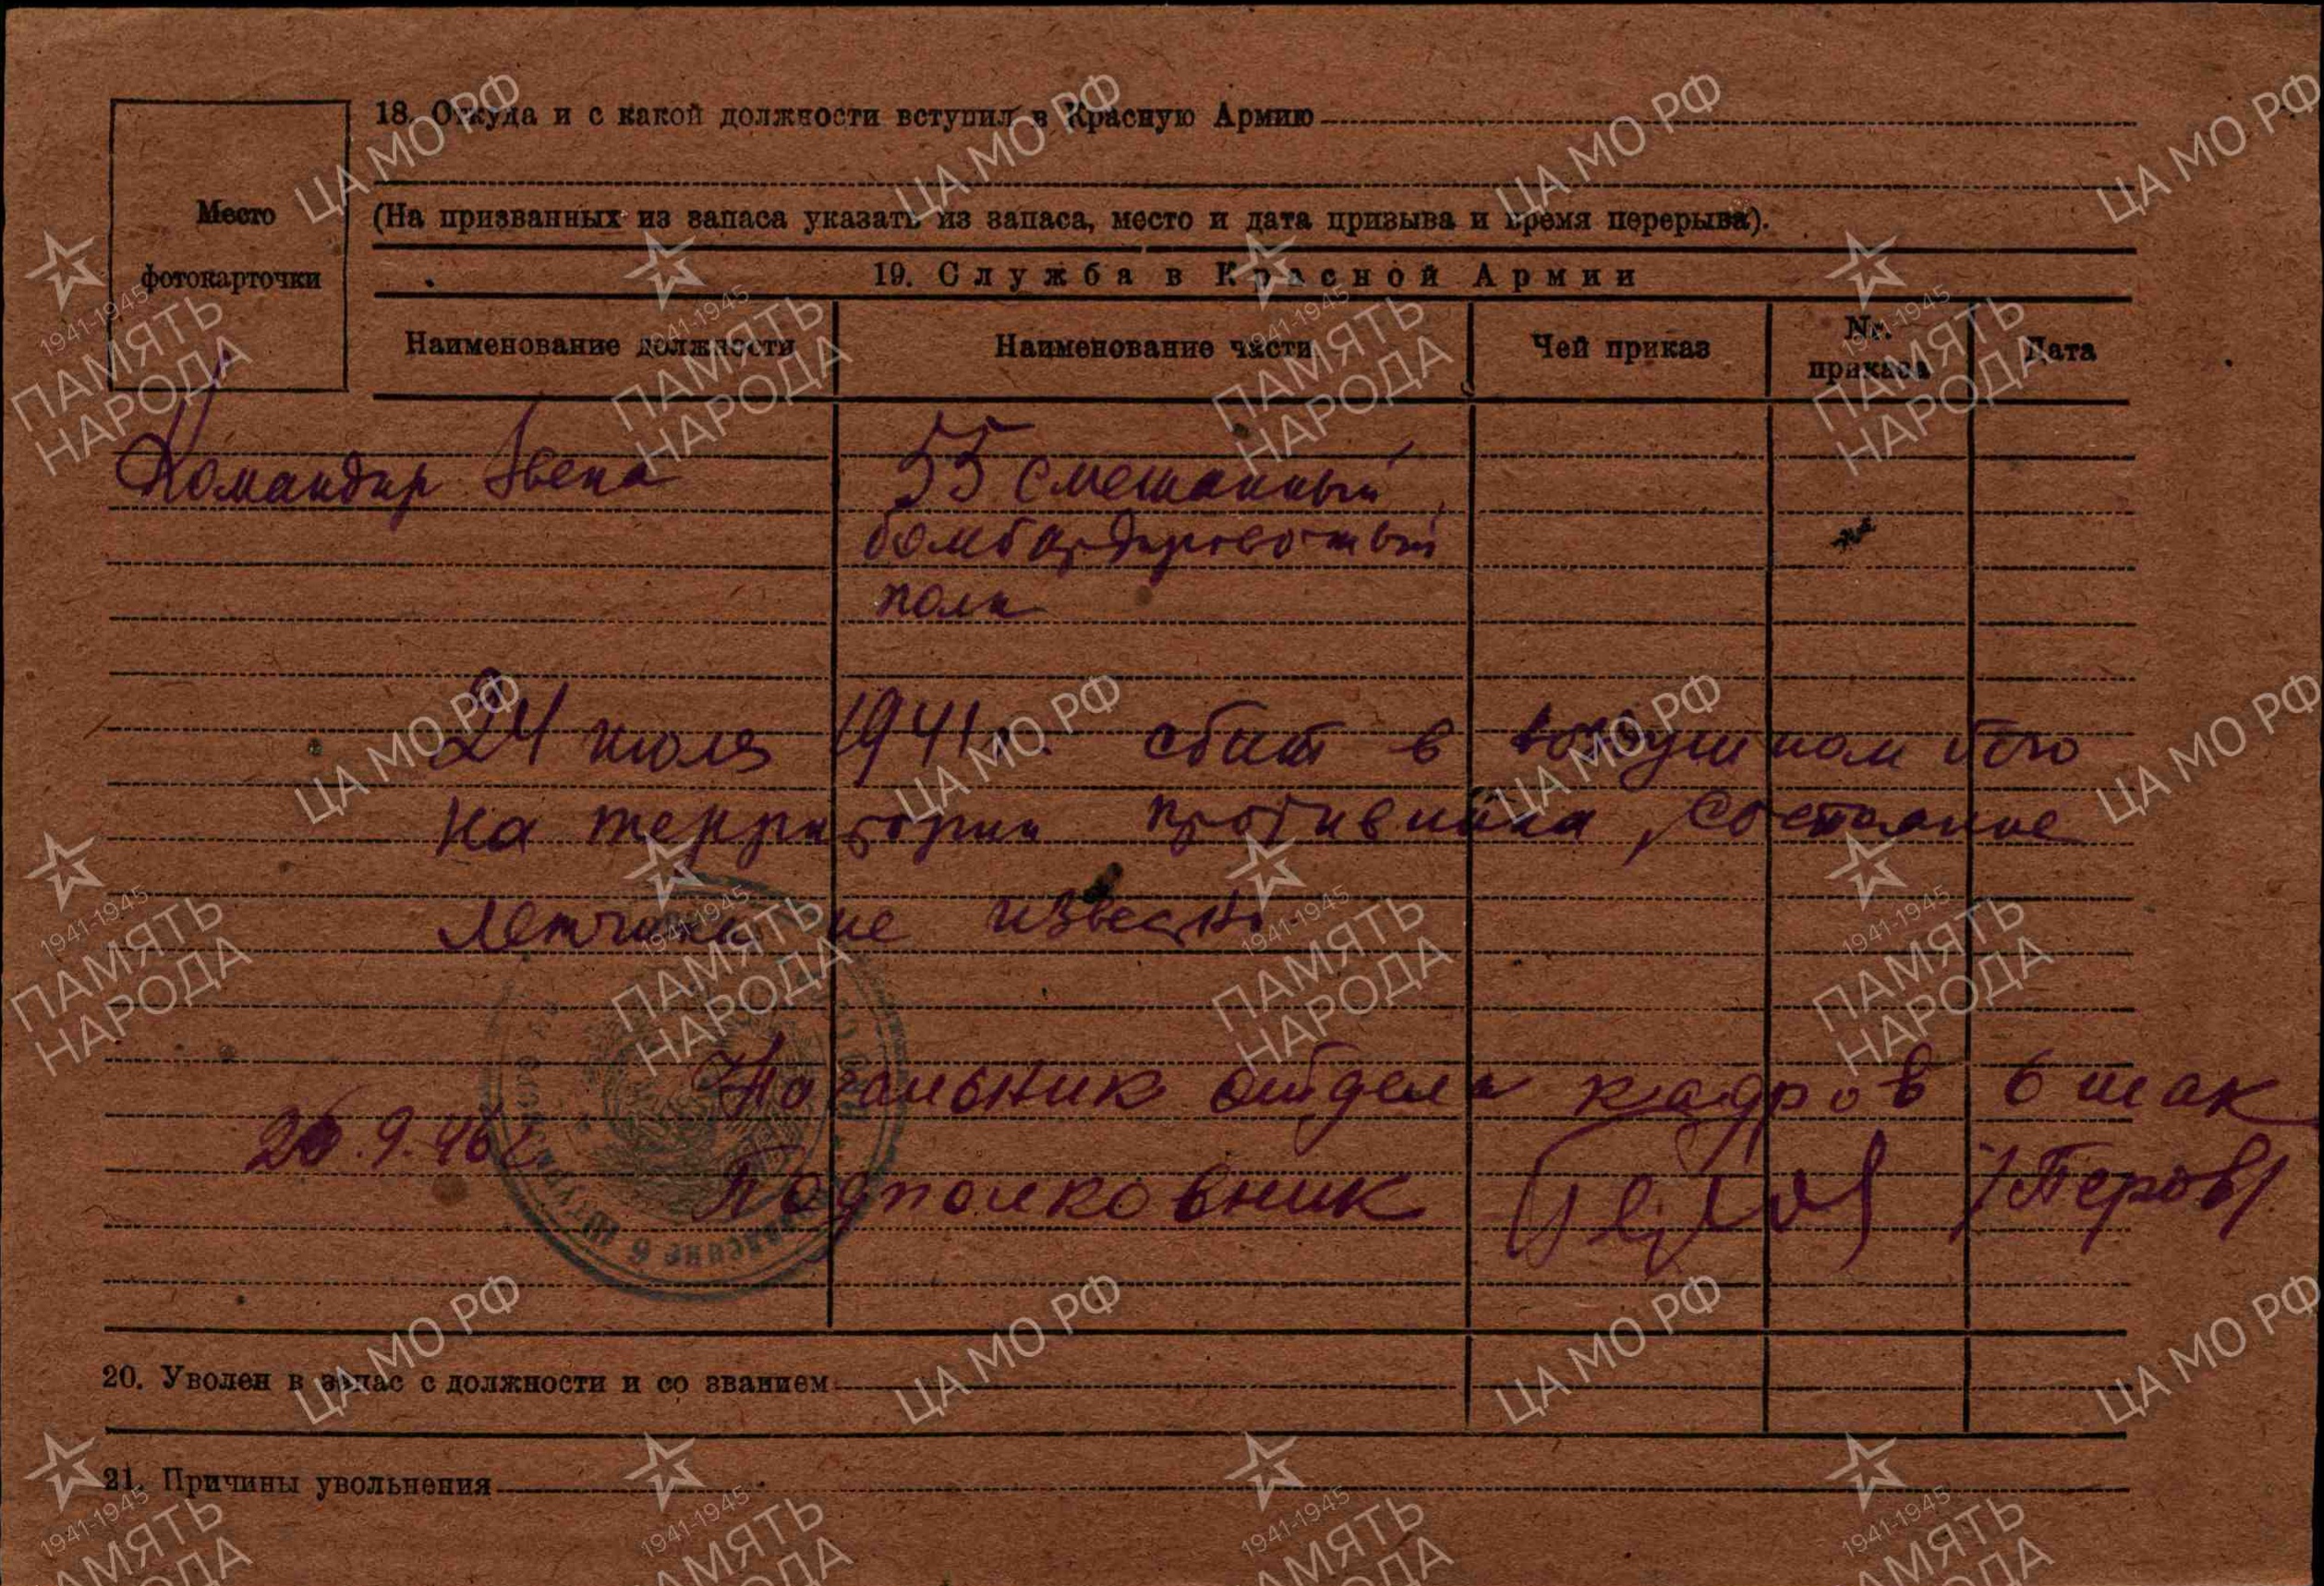 18. Откуда и с какой должности вступил в Красную Армию
(На призванных из запаса указать из запаса, место и дата призыва и время перерыва).
Место
фотокарточки
19. Служба в Красной Армии
Наименование должности Наименование части Чей приказ № приказа Дата
Командир звена 55 смешанный
бомбардировочный
полк
24 июля 1941 г. сбит в воздушном бою
на территории противника, состояние
летчика не известно
Начальник отдела кадров 6 шак
9.46 г.
Подполковник /Перов/
20. Уволен в запас с должности и со званием
21. Причины увольнения
ЦА МО РФ
1941-1945
ПАМЯТЬ
НАРОДА